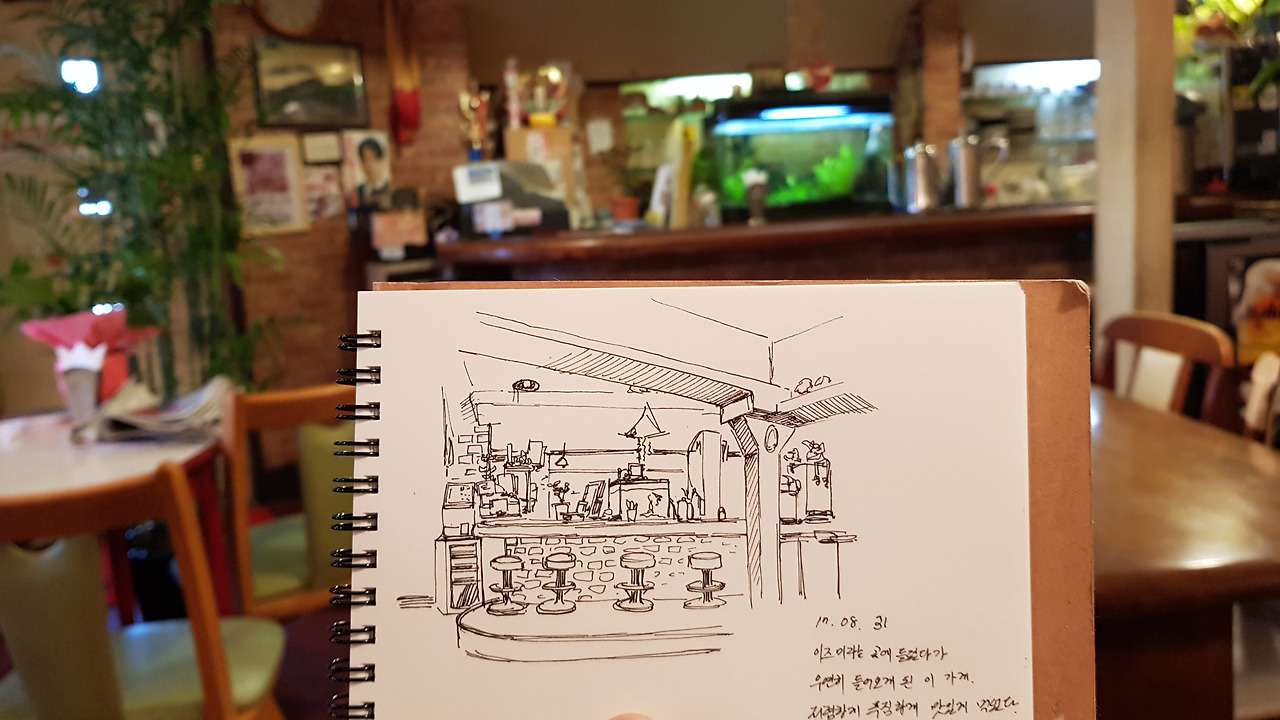 17. 08. 31
이즈미라는 곳에 들렀다가
우연히 들어오게 된 이 가게.
저렴한게 푸짐하게 맛있게 먹었다.